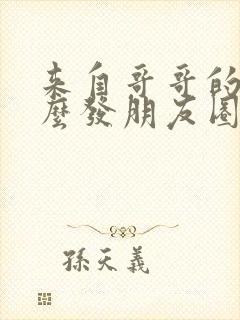 来自哥哥的
麼發朋友圈
孫天義